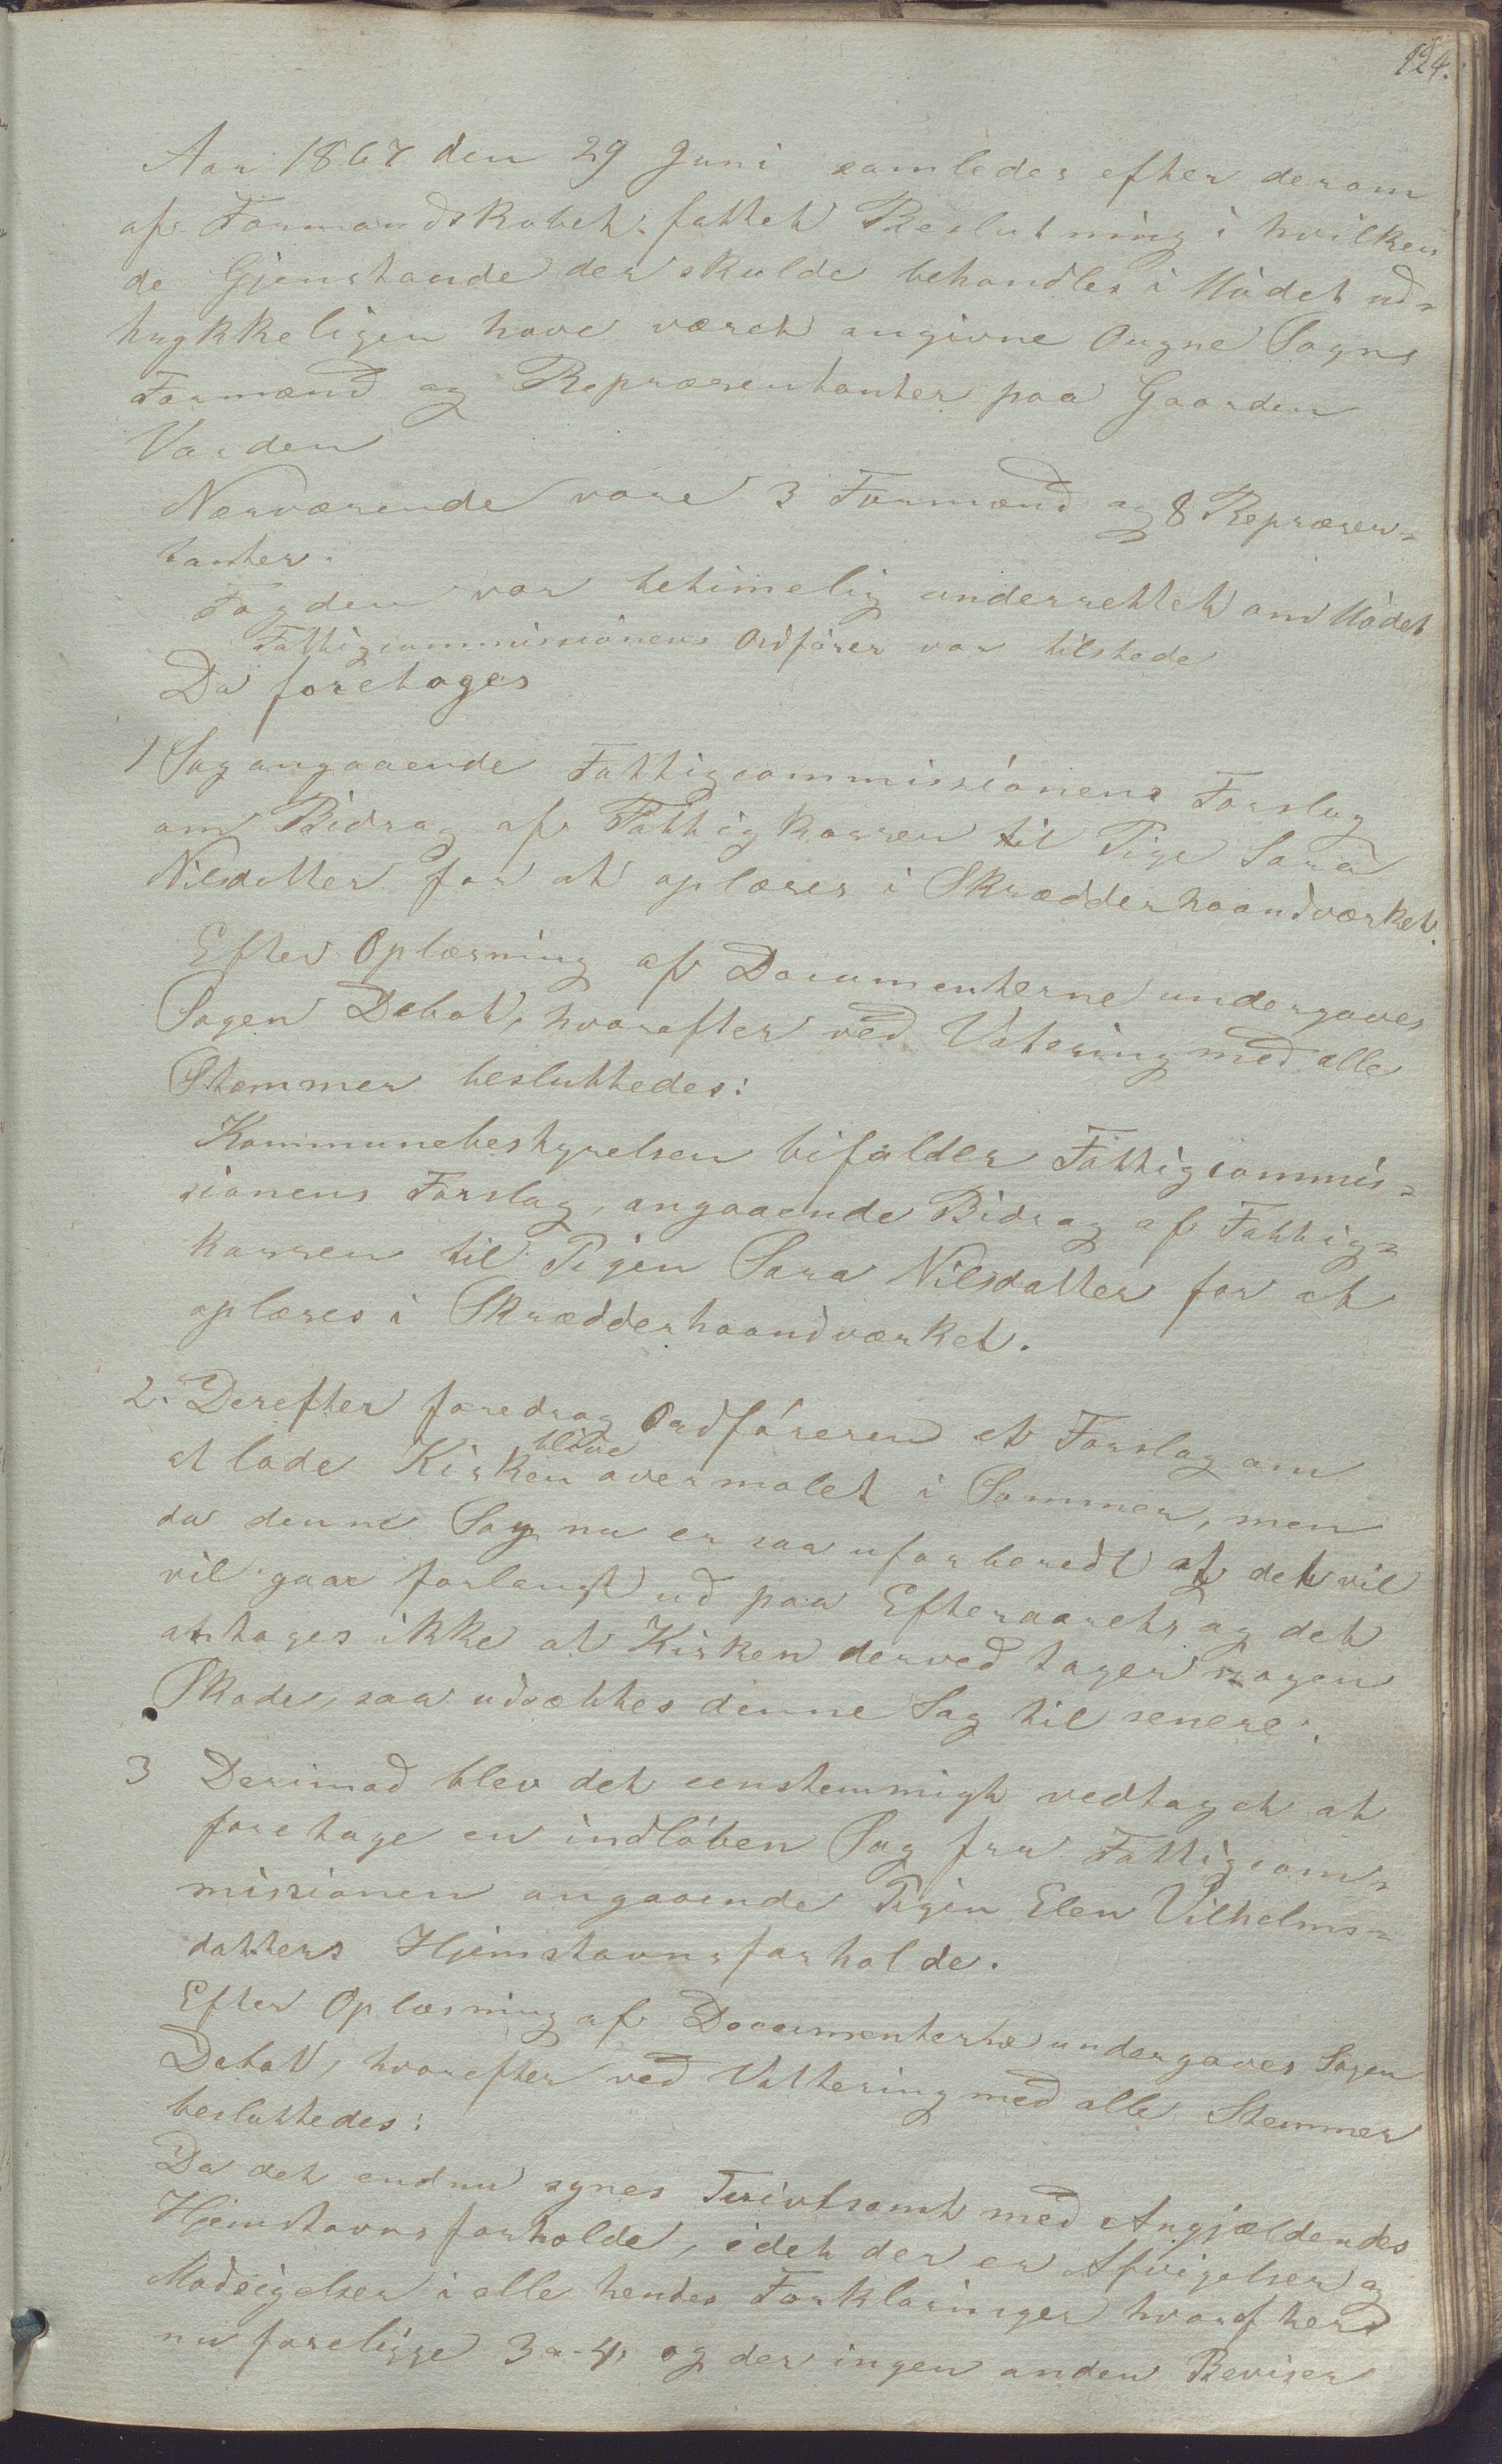 124.
Aar 1867 den 29 Juni samledes efter derom
af Formandskabet fattet Beslutning i hvilken
de Gjenstande der skulde behandles i Mødet ud=
trykkeligen have været angivne Ougne Sogns
Formænd og Repræsentanter paa Gaarden
Varden
Nærværende vare 3 Formænd og 8 Repræsen=
tanter.
Fogden var betimelig underrettet om Mødet
Fattigcommissionens Ordfører var tilstede
Da foretoges
1 Sag angaaende Fattigcommissionens Forslag
om Bidrag af Fattigkassen til Pige Sara
Nilsdatter for at oplæres i Skrædderhaandværket.
Efter Oplæsning af Documenterne undergaves
Sagen Debat, hvorefter ved Votering med alle
Stemmer besluttedes:
Kommunebestyrelsen bifalder Fattigcommis=
sionens Forslag, angaaende Bidrag af Fattig=
kassen til Pigen Sara Nilsdatter for at
oplæres i Skrædderhaandværket.
2. Derefter foredrog Ordføreren et Forslag om
at lade Kirken blive overmalet i Sommer, men
da denne Sag nu er saa uforberedt at det vil
vil gaae forlangt ud paa Efteraaret, og det
antages ikke at Kirken derved tager nogen
Skade, saa udsættes denne Sag til senere.
3 Derimod blev det eenstemmigt vedtaget at
foretage en indløben Sag fra Fattigcom=
missionen angaaende Pigen Elen Vilhelms=
datters Hjemstavnsforholde.
Efter Oplæsning af Documenterne undergaves Sagen
Debat, hvorefter ved Vottering med alle Stemmer
besluttedes:
Da det endnu synes Tvivlsomt med Angjældendes
Hjemstavnsforholde, idet der er Afvigelser og
Modsigelser i alle hendes Forklaringer hvoraf her
nu foreligge 3 a 4, og der ingen anden Beviser